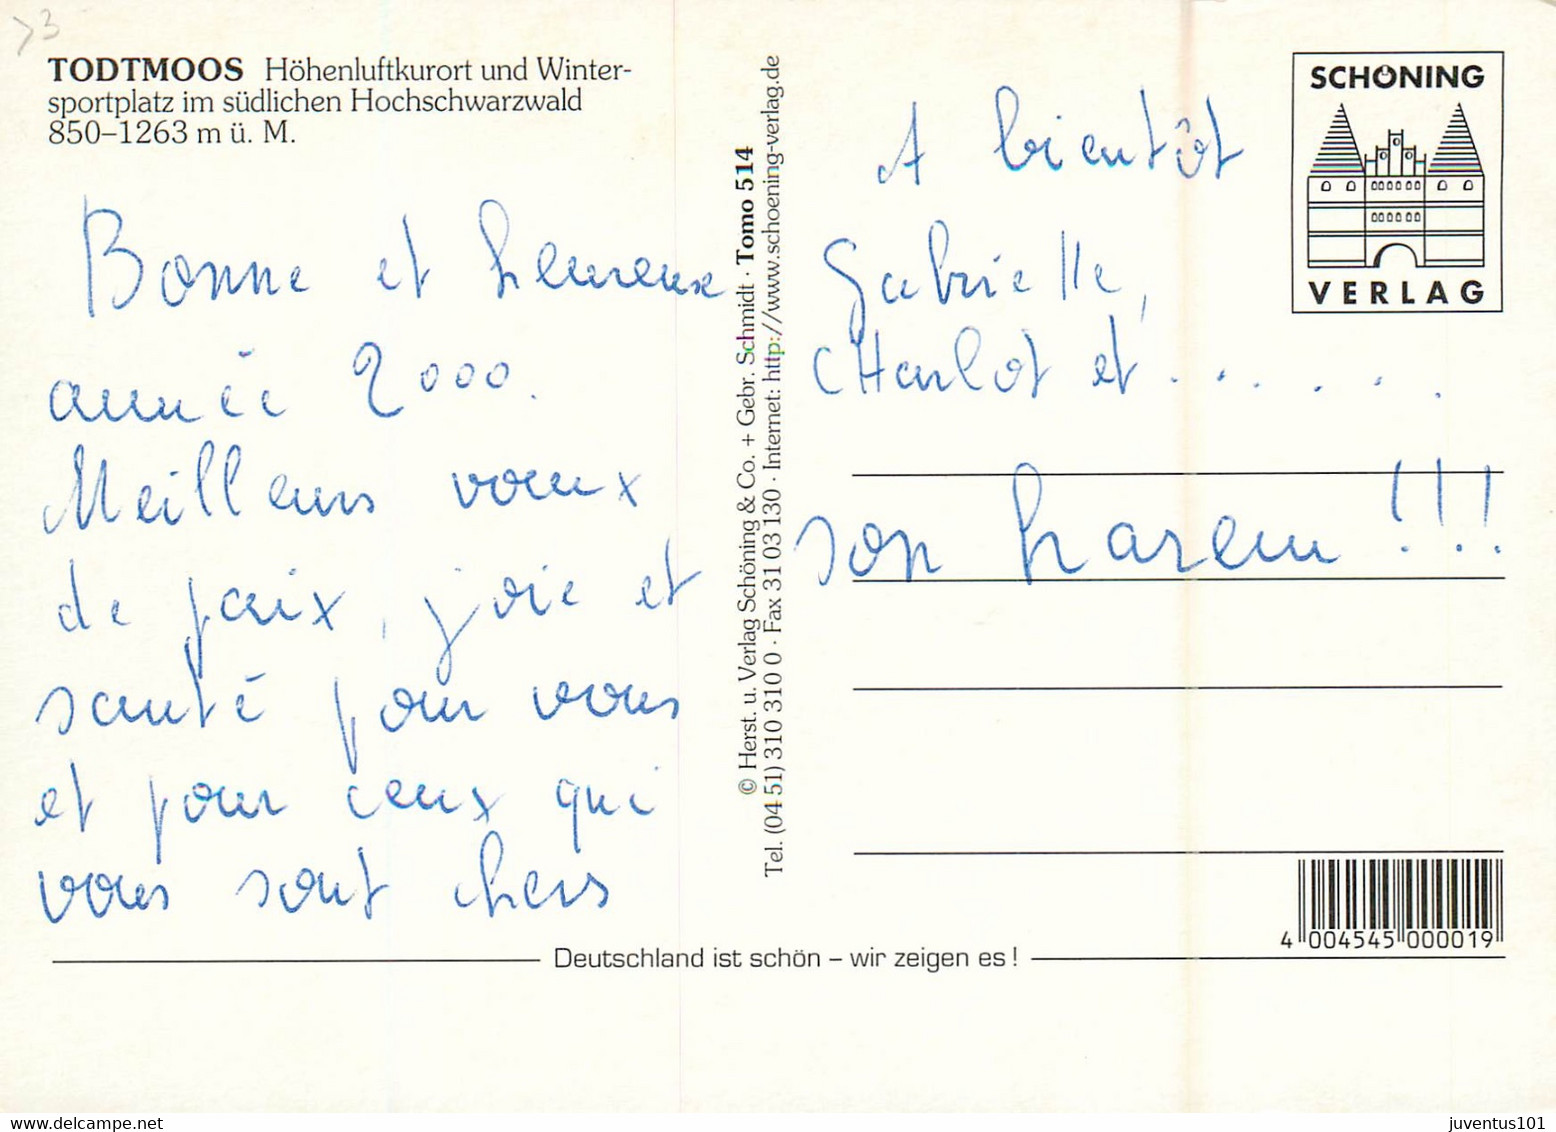 >3
TODTMOOS Höhenluftkurort und Winter-
sportplatz im südlichen Hochschwarzwald
850–1263 m ü. M.
Bonne et heureuse
année 2000.
Meilleurs voeux
de paix, joie et
santé pour vous
et pour ceux qui
vous sont chers
© Herst. u. Verlag Schöning & Co. + Gebr. Schmidt · Tomo 514
Tel. (04 51) 310 310 0 · Fax 31 03 130 · Internet: http://www.schoening-verlag.de
A bientôt
Gabrielle,
CHarlot et . . . . . .
son harem !!!
SCHÖNING
VERLAG
4 004545 000019
Deutschland ist schön – wir zeigen es !
www.delcampe.net
juventus101